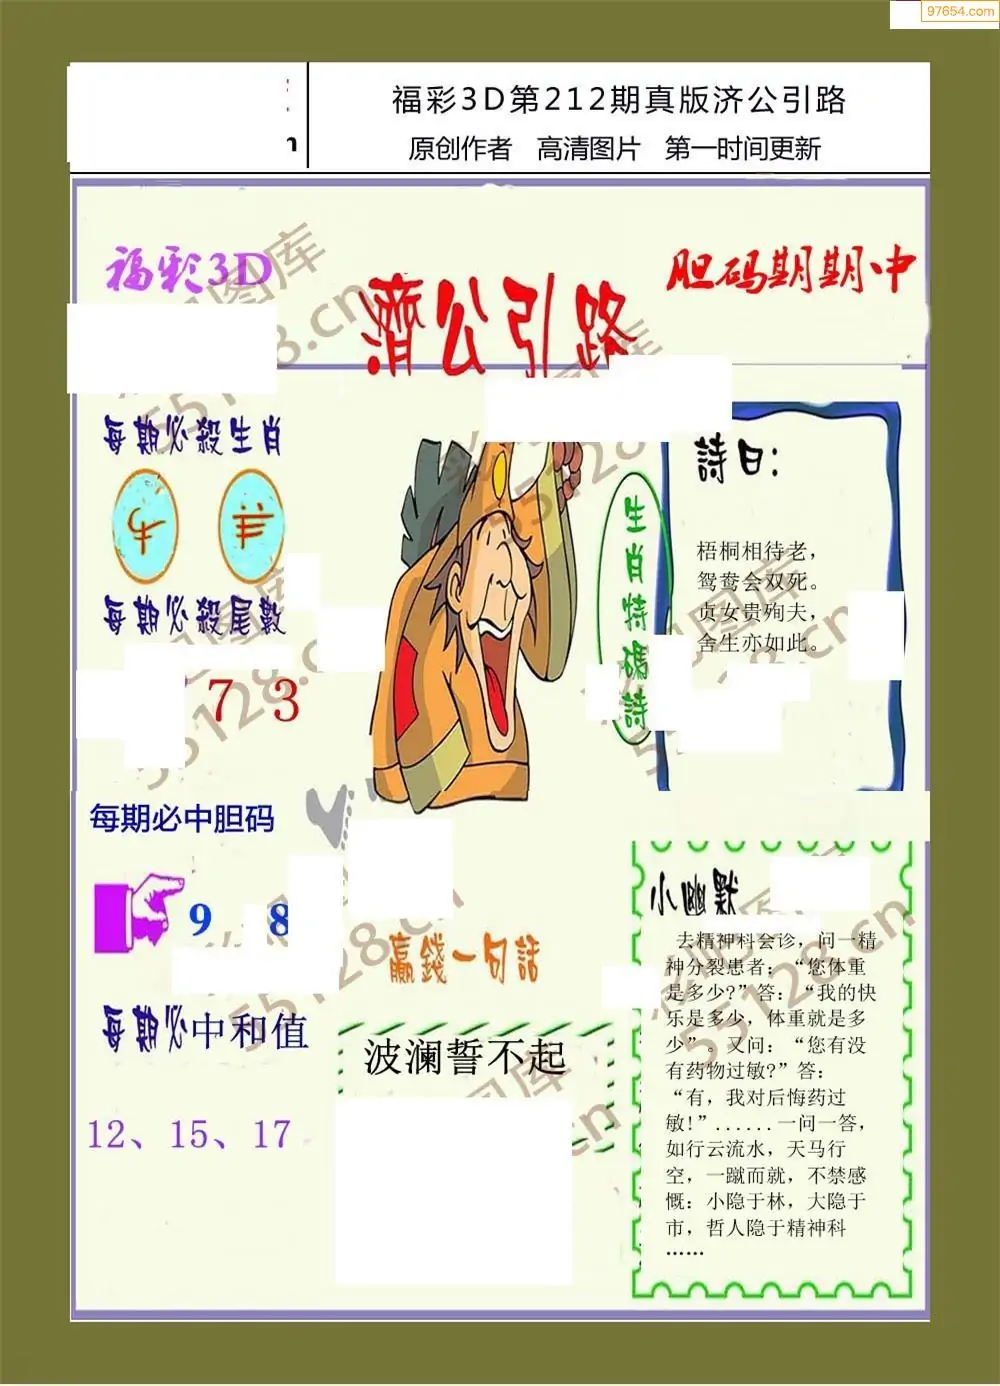 97654.com
福彩3D第212期真版济公引路
原创作者 高清图片 第一时间更新
福彩3D
濟公引路
胆码期期中
每期必殺生肖
牛 羊
每期必殺尾數
7 3
每期必中胆码
9 8
每期必中和值
12、15、17
生肖特碼詩
詩曰：
梧桐相待老，
鸳鸯会双死。
贞女贵殉夫，
舍生亦如此。
赢錢一句話
波澜誓不起
小幽默
去精神科会诊，问一精
神分裂患者：“您体重
是多少?”答：“我的快
乐是多少，体重就是多
少”。又问：“您有没
有药物过敏?”答：
“有，我对后悔药过
敏!”......一问一答，
如行云流水，天马行
空，一蹴而就，不禁感
慨：小隐于林，大隐于
市，哲人隐于精神科
……
图库
55128.cn